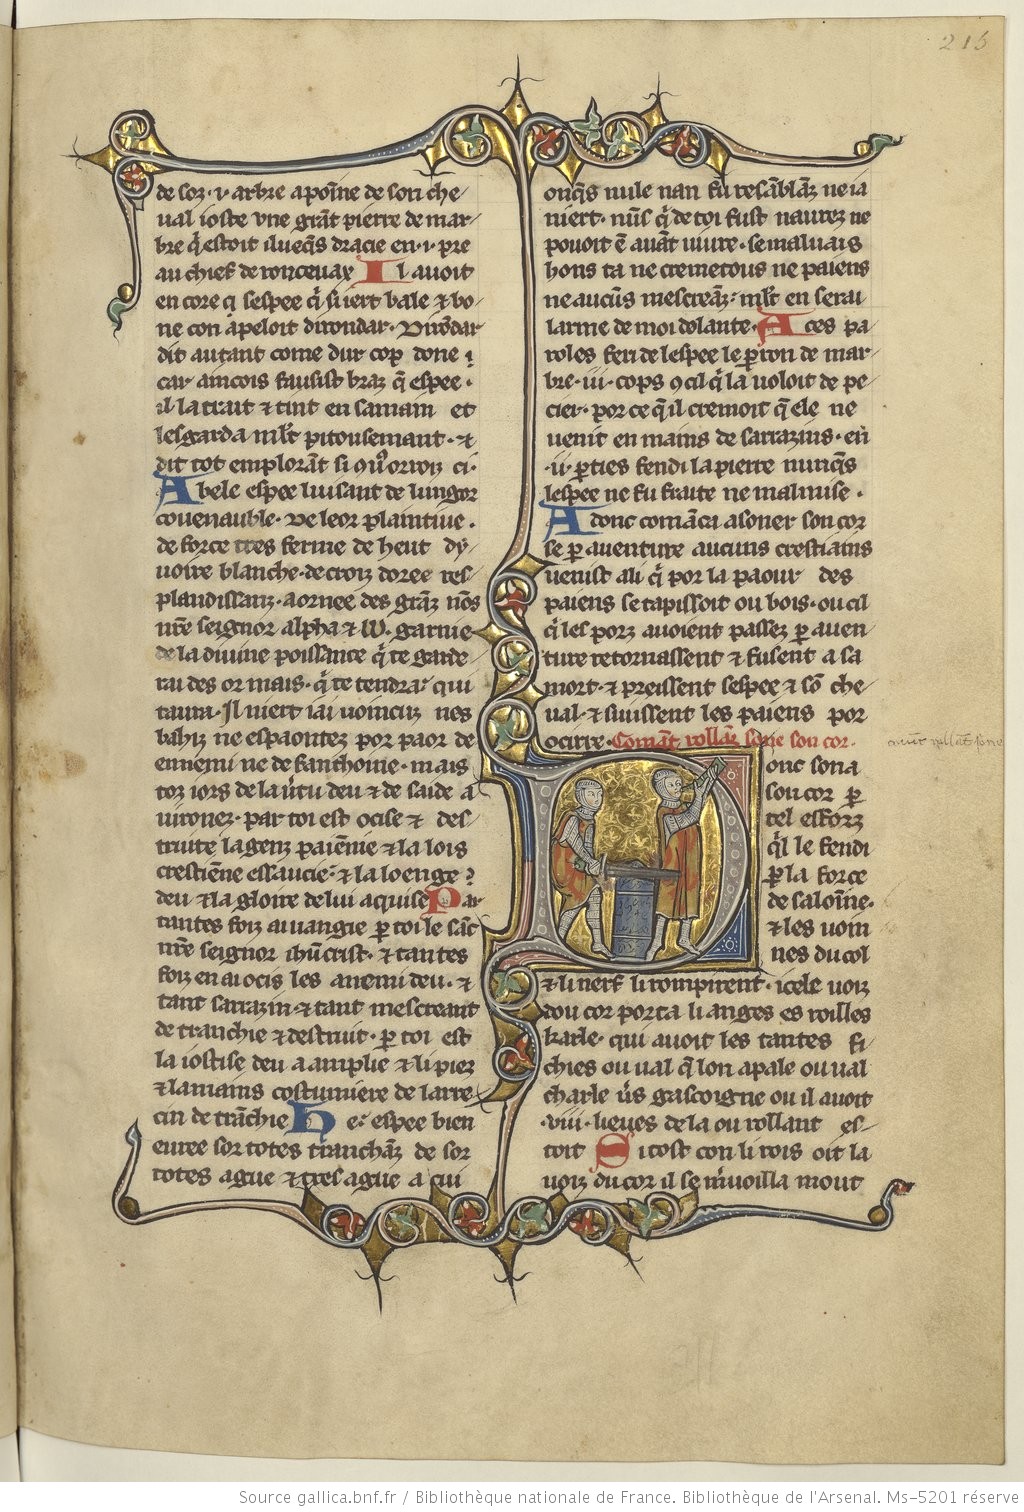 215
de soz .i. arbre apoıne de son che-
ual ioste vne grāt pierre de mar-
bre q̄ estoit ilueq̄s dracie en .i. pre
au chief de ronceuax Il auoit
en core ci sespee q̄ si iert bale ⁊ bo-
ne con apeloit dirondar. Durōdar
dit autant come dur cop done ⁊
car aincois fausist braz q̄ espee.
il la trait ⁊ tint en samain et
lesgarda ml't pitousemant. ⁊
dit tot emplorāt si 9 uo' orroiz ci.
A bele espee luisant de lungor
couenauble. De leor plaintiue.
de force tres ferme de heut dy-
uoire blanche. de croiz doree res-
plandissanz. aornee des grāz nōs
nr̄e seignor alpha ⁊ ω. garnie
de la diuine poissance q̄ te garde
rai des or mais. q̄ te tendra. qui
taura. Il niert iai uoincuz nes
bahiz ne espaontez por paor de
ennemi ne de fanthome. mais
toz iors de la u'tu deu ⁊ de saide a
uironez. par toi est ocise ⁊ des-
truite la genz paiēnie ⁊ la lois
crestiēne essaucie. ⁊ la loenge
deu ⁊ la gloire de lui aquise Par
tantes foiz ai uangie p̱ toi le sāc
nr̄e seignor ihūcrist. ⁊ tantes
foiz en ai ocis les anemi deu. ⁊
tant sarrazin ⁊ tant mescreant
de tranchie ⁊ destruit. p̱ toi est
la iostise deu a amplie ⁊ li piez
⁊ la mains costumiere de larre-
cin de trāchie He. espee bien
euree sor totes trancha̅z de sor
totes ague ⁊ tres ague a cui
onq̄s nule nan fu resāblāz ne ia
niert. nu̅s q̄ de toi fust naurez ne
pouoit ē auāt uiure. se maluais
hons ta ne cremetous ne paiens
ne aucūs mescreāz. ml't en serai
larme de moi dolante. A ces pa-
roles feri de lespee le p̱ron de mar-
bre .iii. cops 9 cil q̄ la uoloit de pe-
cier. por ce q̄ il cremoit q̄ ele ne
uenit en mains de sarrazins. en
.ii. p̱ties fendi la pierre nunq̄s
lespee ne fu fraite ne malmise.
Adonc comāca a soner son cor
se p̱ auenture aucuns crestiains
uenist ali q̄ por la paour des
paiens se tapissoit ou bois. ou cil
q̄ les porz auoient passez p̱ auen
ture retornassent ⁊ fusent a sa
mort. ⁊ preissent sespee ⁊ sō che-
ual. ⁊ siuissent les paiens por
ocirre. Comāt rollāz sone son cor.
Donc sona
son cor p̱
tel esforz
q̄l le fendi
p̱ la force
de saloine.
⁊ les uoin
nes du col
⁊ li nerf li rompirent. icele uoiz
dou cor porta li anges es roilles
karle. qui auoit les tantes fi-
chies ou ual q̄ lon apale ou ual
charle u's gascoigne ou il auoit
.viii. lieues de la ou rollant es-
toit Si tost con li rois oit la
uoiz du cor il se m'uoilla mout
Source gallica.bnf.fr / Bibliothèque nationale de France. Bibliothèque de l'Arsenal. Ms-5201 réserve